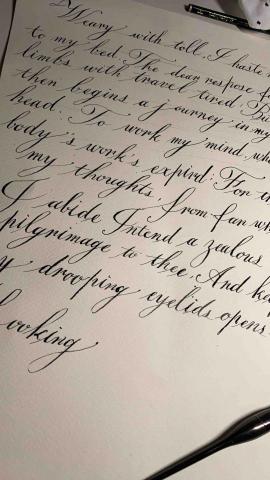 Weary with toil, I haste
to my bed. The dear respose fo
limbs with travel tired, Bu
then begins a journey in my
head. To work my mind, wh
body's work's expird: For th
my thoughts, from far wh
I abide Intend a zealous
pilgrimage to thee, And k
y drooping eyelids opens
ooking